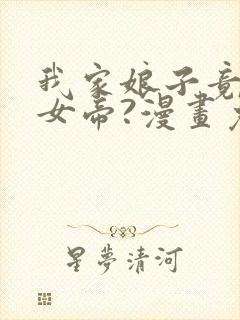 我家娘子竟
女帝?漫畫
星夢清河